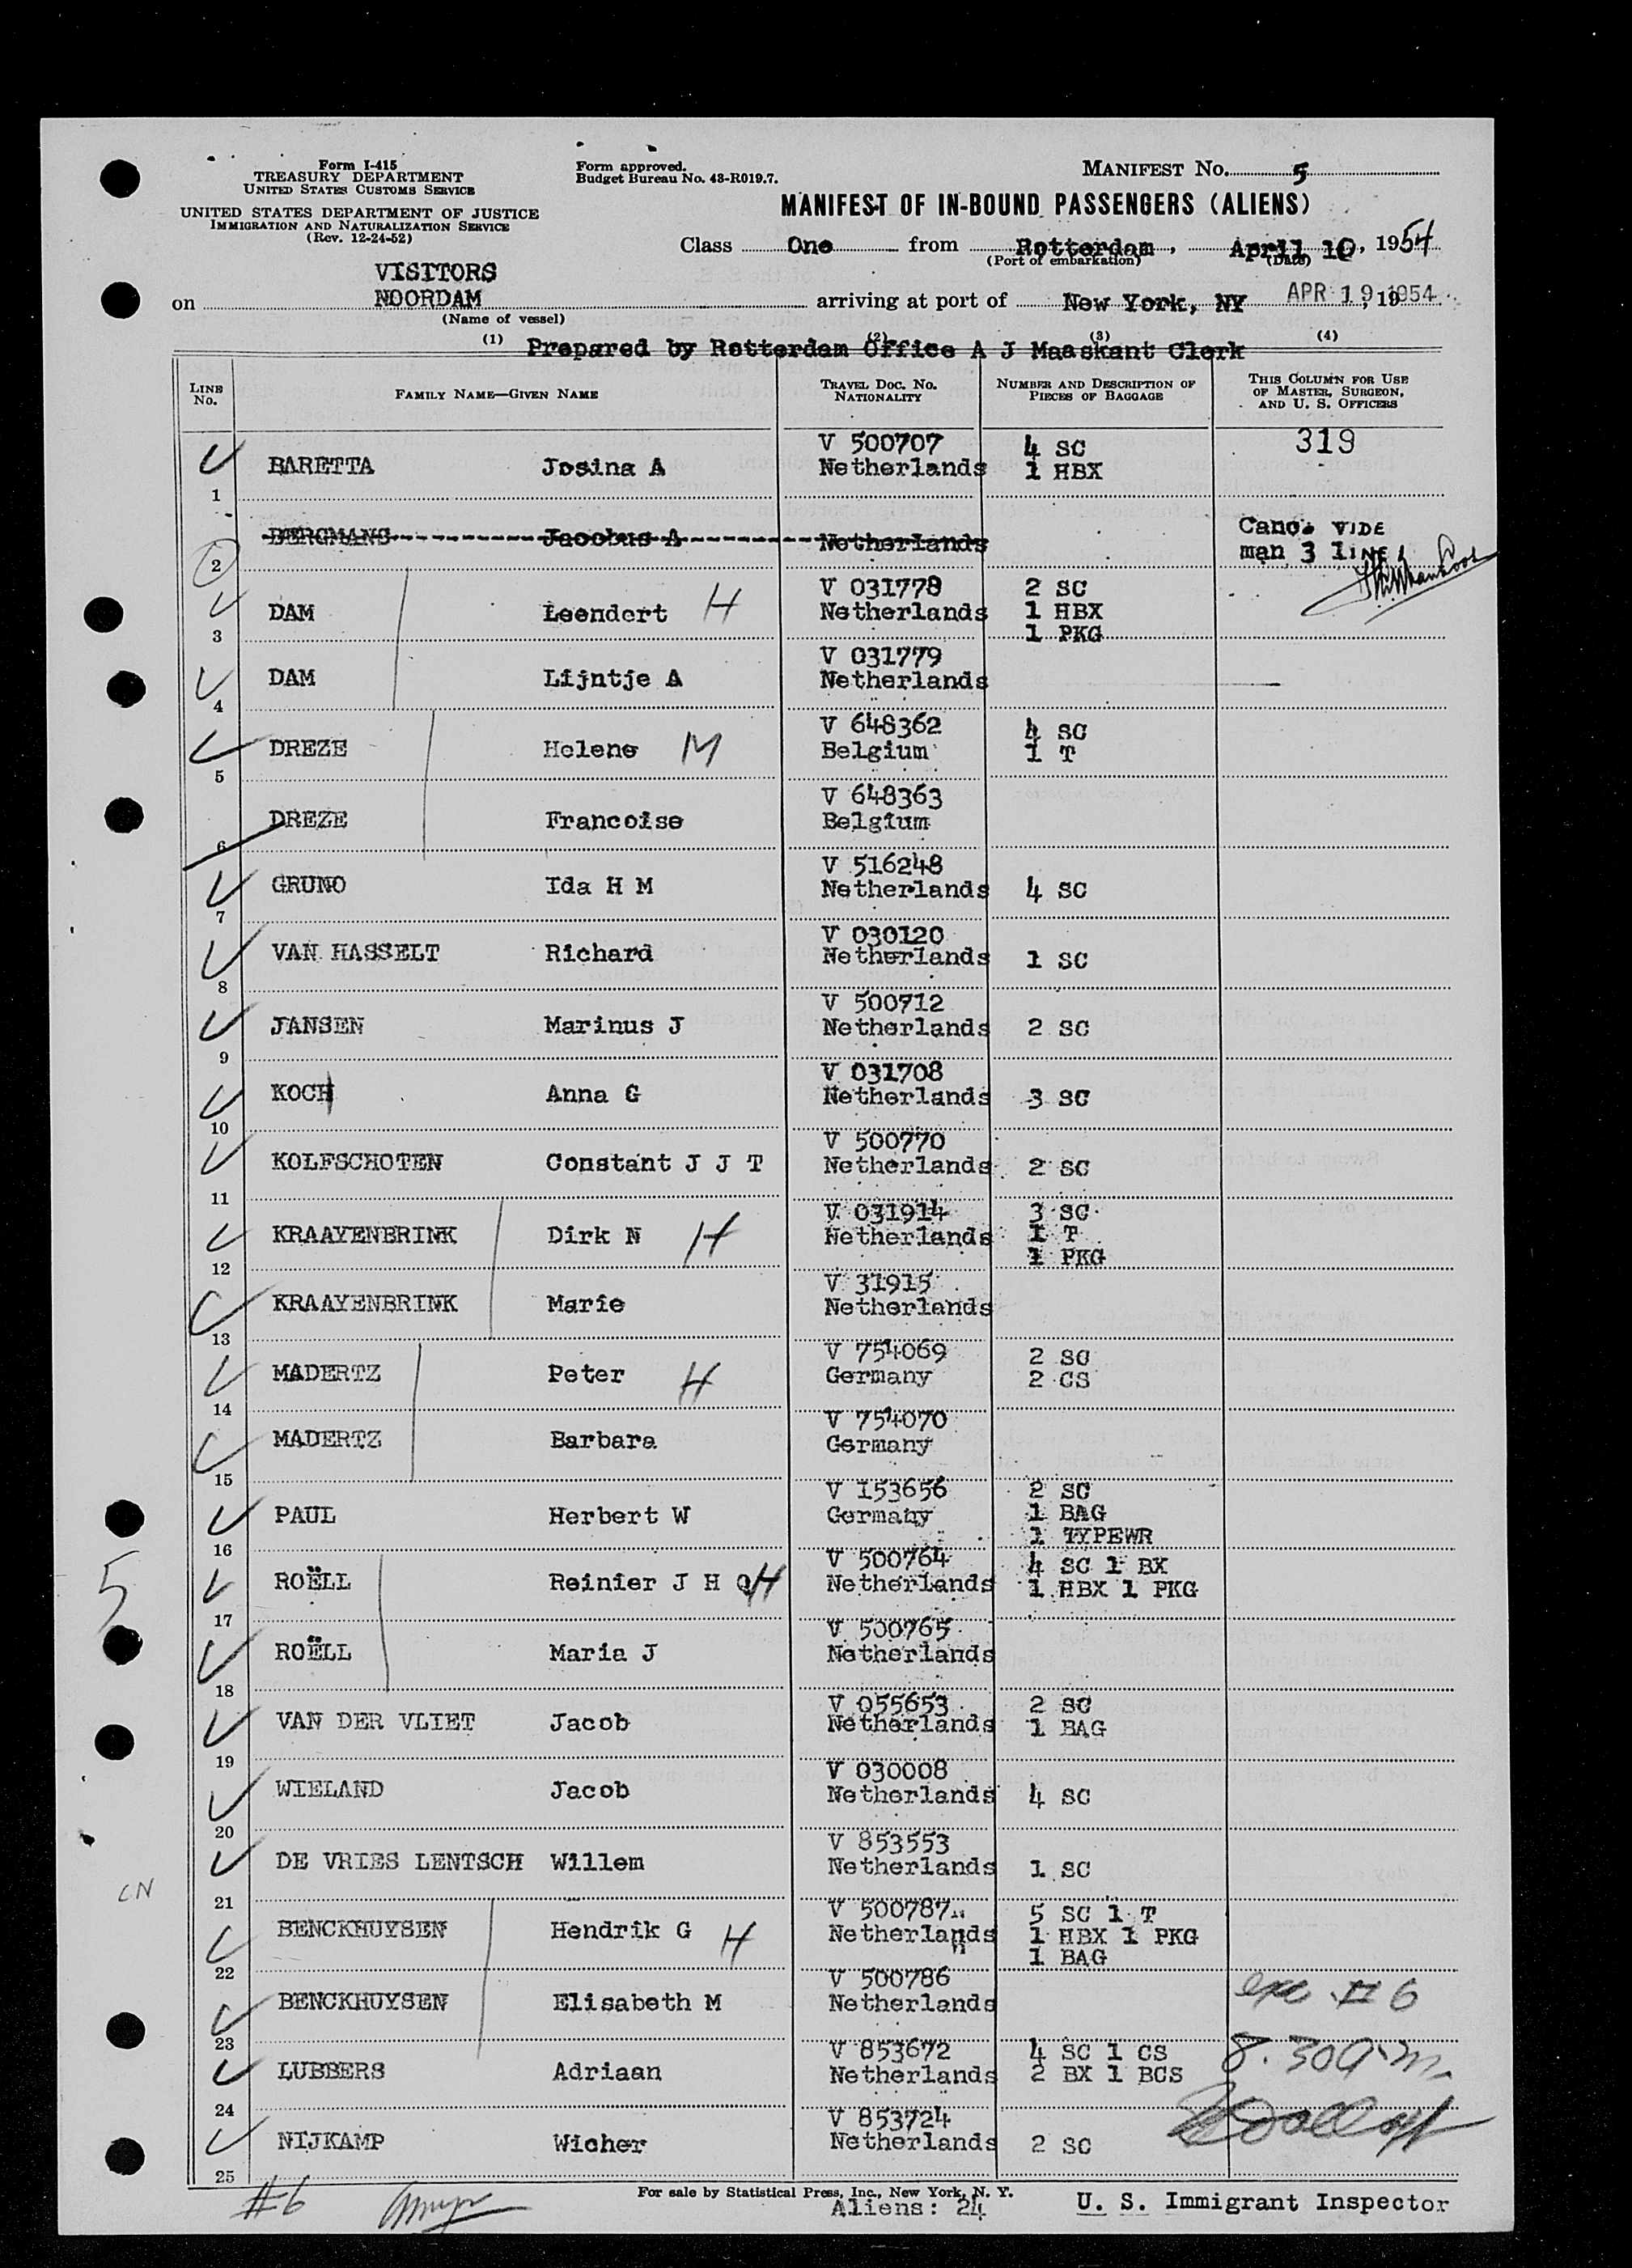 Form I-415
TREASURY DEPARTMENT
UNITED STATES CUSTOMS SERVICE
UNITED STATES DEPARTMENT OF JUSTICE
IMMIGRATION AND NATURALIZATION SERVICE
(Rev. 12-24-52)
Form approved.
Budget Bureau No. 43-R019.7.
MANIFEST No. 5
MANIFEST OF IN-BOUND PASSENGERS (ALIENS)
Class One from Rotterdam, April 10, 1954
(Port of embarkation) (Date)
VISITORS
on NOORDAM arriving at port of New York, NY APR 19 1954, 19
(Name of vessel)
(1) (2) (3) (4)
Prepared by Rotterdam Office A J Maaskant Clerk
LINE No. FAMILY NAME—GIVEN NAME TRAVEL DOC. NO. NATIONALITY NUMBER AND DESCRIPTION OF PIECES OF BAGGAGE THIS COLUMN FOR USE OF MASTER, SURGEON, AND U. S. OFFICERS
V 500707 4 SC 319
BARETTA Josina A Netherlands 1 HBX
1
BERGMANS Jacobus A Netherlands Canc. VIDE
man 3 LINE
2
V 031778 2 SC
DAM Leendert H Netherlands 1 HBX
3 1 PKG
V 031779
DAM Lijntje A Netherlands
4
V 648362 4 SC
DREZE Helene M Belgium 1 T
5
V 648363
DREZE Francoise Belgium
6
V 516248
GRUNO Ida H M Netherlands 4 SC
7
V 030120
VAN HASSELT Richard Netherlands 1 SC
8
V 500712
JANSEN Marinus J Netherlands 2 SC
9
V 031708
KOCH Anna G Netherlands 3 SC
10
V 500770
KOLFSCHOTEN Constant J J T Netherlands 2 SC
11
V 031914 3 SC
KRAAYENBRINK Dirk N H Netherlands 1 T
12 1 PKG
V 31915
KRAAYENBRINK Marie Netherlands
13
V 754069 2 SC
MADERTZ Peter H Germany 2 CS
14
V 754070
MADERTZ Barbara Germany
15
V 153656 2 SC
PAUL Herbert W Germany 1 BAG
16 1 TYPEWR
V 500764 4 SC 1 BX
5 ROËLL Reinier J H H Netherlands 1 HBX 1 PKG
17
V 500765
ROËLL Maria J Netherlands
18
V 055653 2 SC
VAN DER VLIET Jacob Netherlands 1 BAG
19
V 030008
WIELAND Jacob Netherlands 4 SC
20
V 853553
DE VRIES LENTSCH Willem Netherlands 1 SC
21
V 500787 5 SC 1 T
BENCKHUYSEN Hendrik G H Netherlands 1 HBX 1 PKG
22 1 BAG
V 500786
BENCKHUYSEN Elisabeth M Netherlands exc # 6
23
V 853672 4 SC 1 CS 8.30 a.m.
LUBBERS Adriaan Netherlands 2 BX 1 BCS
24
V 853724
NIJKAMP Wicher Netherlands 2 SC
25
#6
For sale by Statistical Press, Inc., New York, N. Y.
Aliens: 24
U. S. Immigrant Inspector